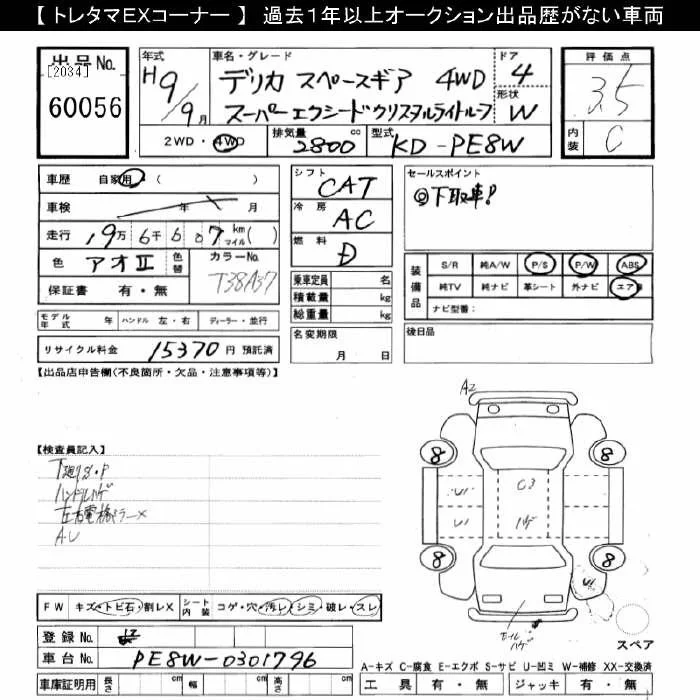 【 トレタマEXコーナー 】 過去1年以上オークション出品歴がない車両
出品No.
[2034]
60056
年式
H9/9月
車名・グレード
デリカ スペースギア 4WD
スーパーエクシードクリスタルライトルーフ
ドア
4
形状
W
評価点
3.5
内装
C
2WD・4WD
排気量
2800 cc
型式
KD-PE8W
車歴 自家用 ( )
車検 年 月
走行 19万6千607 km マイル( )
色 アオII 色替
カラーNo.
T38A37
保証書 有・無
モデル年式 年 ハンドル 左・右 ディーラー・並行
リサイクル料金 15370 円 預託済
シフト
CAT
冷房
AC
燃料
D
乗車定員 名
積載量 kg
総重量 kg
名変期限
月 日
セールスポイント
◎下取車!
装備品
S/R 純A/W P/S P/W ABS
純TV 純ナビ 革シート 外ナビ エアB
ナビ型番:
後日品
【出品店申告欄(不良箇所・欠品・注意事項等)】
【検査員記入】
ハンドルハゲ
左右電格ミラー×
AU
FW キズ・トビ石・割レX シート内装 コゲ・穴・汚レ・シミ・破レ・スレ
登録No.
車台No. PE8W-0301796
車庫証明用 長さ cm 幅 cm 高さ cm
A2
8 8
U1 C3
U1 ハゲ
8 8
U1
ホイルハゲ
スペア
A-キズ C-腐食 E-エクボ S-サビ U-凹ミ W-補修 XX-交換済
工具 有・無 ジャッキ 有・無